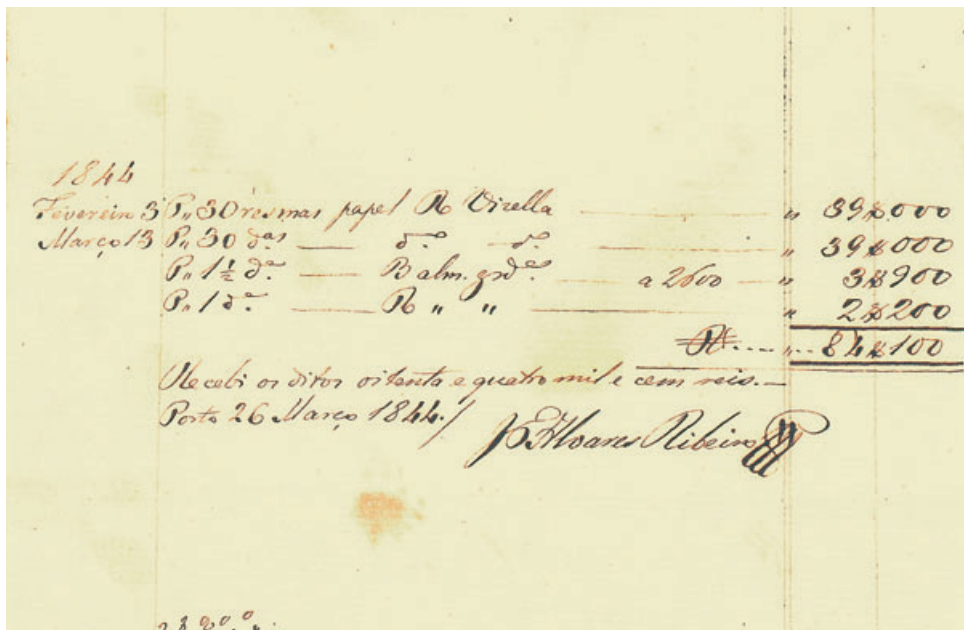 1844
Fevereiro 3 P.. 30 resmas papel Ro Vizella " 39$000
Março 13 P.. 30 das do do " 39$000
P.. 1½ da Balm. grde a 2600 " 3$900
P.. 1 da Ro " " " 2$200
Rs..... " .. 84$100
Recebi os ditos oitenta e quatro mil e cem reis.
Porto 26 Março 1844./
Alvares Ribeiro